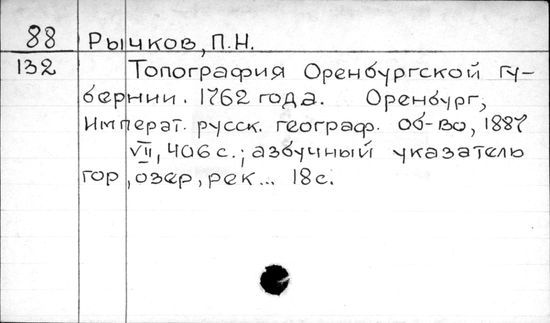 88 Рычков, П.Н.
132 Топография Оренбургской гу-
бернии. 1762 года. Оренбург,
Императ. русск. географ. об-во, 1887
VII, 406 с.; азбучный указатель
гор, озер, рек... 18 с.